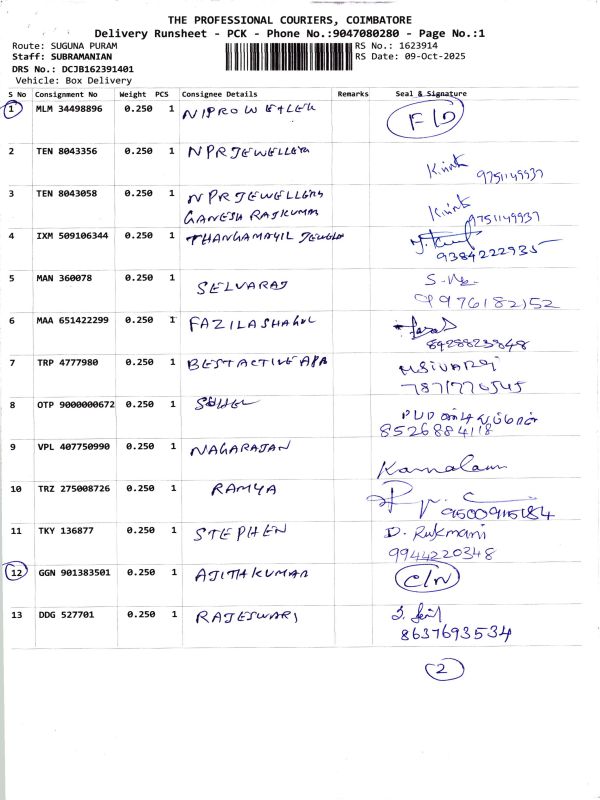 THE PROFESSIONAL COURIERS, COIMBATORE
Delivery Runsheet - PCK - Phone No.:9047080280 - Page No.:1
Route: SUGUNA PURAM RS No.: 1623914
Staff: SUBRAMANIAN RS Date: 09-Oct-2025
DRS No.: DCJB162391401
Vehicle: Box Delivery
S No Consignment No Weight PCS Consignee Details Remarks Seal & Signature
1 MLM 34498896 0.250 1 NIPRO F/D
2 TEN 8043356 0.250 1 NPR JEWELLERY
9751149937
3 TEN 8043058 0.250 1 NPR JEWELLERY
GANESH RAJKUMAR 9751149937
4 IXM 509106344 0.250 1 THANGAMAYIL
9384222935
5 MAN 360078 0.250 1 SELVARAJ
9976182152
6 MAA 651422299 0.250 1 FAZILA SHAHUL
8428823848
7 TRP 4777980 0.250 1 BEST ACTIVE APA M SIVARAJ
7871770545
8 OTP 9000000672 0.250 1
8526884118
9 VPL 407750990 0.250 1 NAGARAJAN
Kamalam
10 TRZ 275008726 0.250 1 RAMYA
9500915184
11 TKY 136877 0.250 1 STEPHEN D. Rukmani
9944220348
12 GGN 901383501 0.250 1 AJITHKUMAR C/N
13 DDG 527701 0.250 1 RAJESWARI
8637693534
2